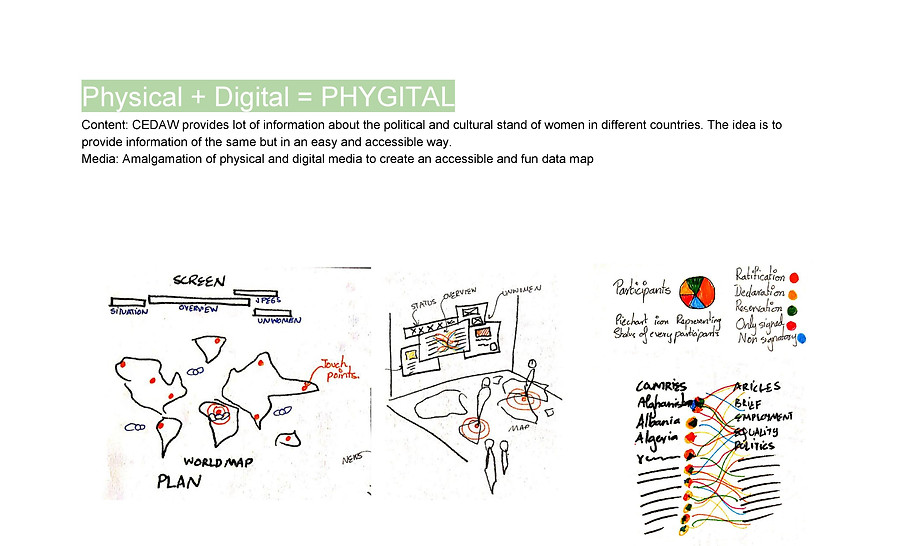 Physical + Digital = PHYGITAL
Content: CEDAW provides lot of information about the political and cultural stand of women in different countries. The idea is to
provide information of the same but in an easy and accessible way.
Media: Amalgamation of physical and digital media to create an accessible and fun data map
SCREEN
SITUATION
OVERVIEW
JPEGS
UNWOMEN
Touch
points.
WORLD MAP
PLAN
NEWS
STATUS
OVERVIEW
UNWOMEN
MAP
Participants
Piechart icon Representing
Status of every participants
Ratification
Declaration
Reservation
Only signed
Non signatory
COUNTRIES
Afghanistan
Albania
Algeria
Yemen
ARICLES
BRIEF
EMPLOYMENT
EQUALITY
POLITICS